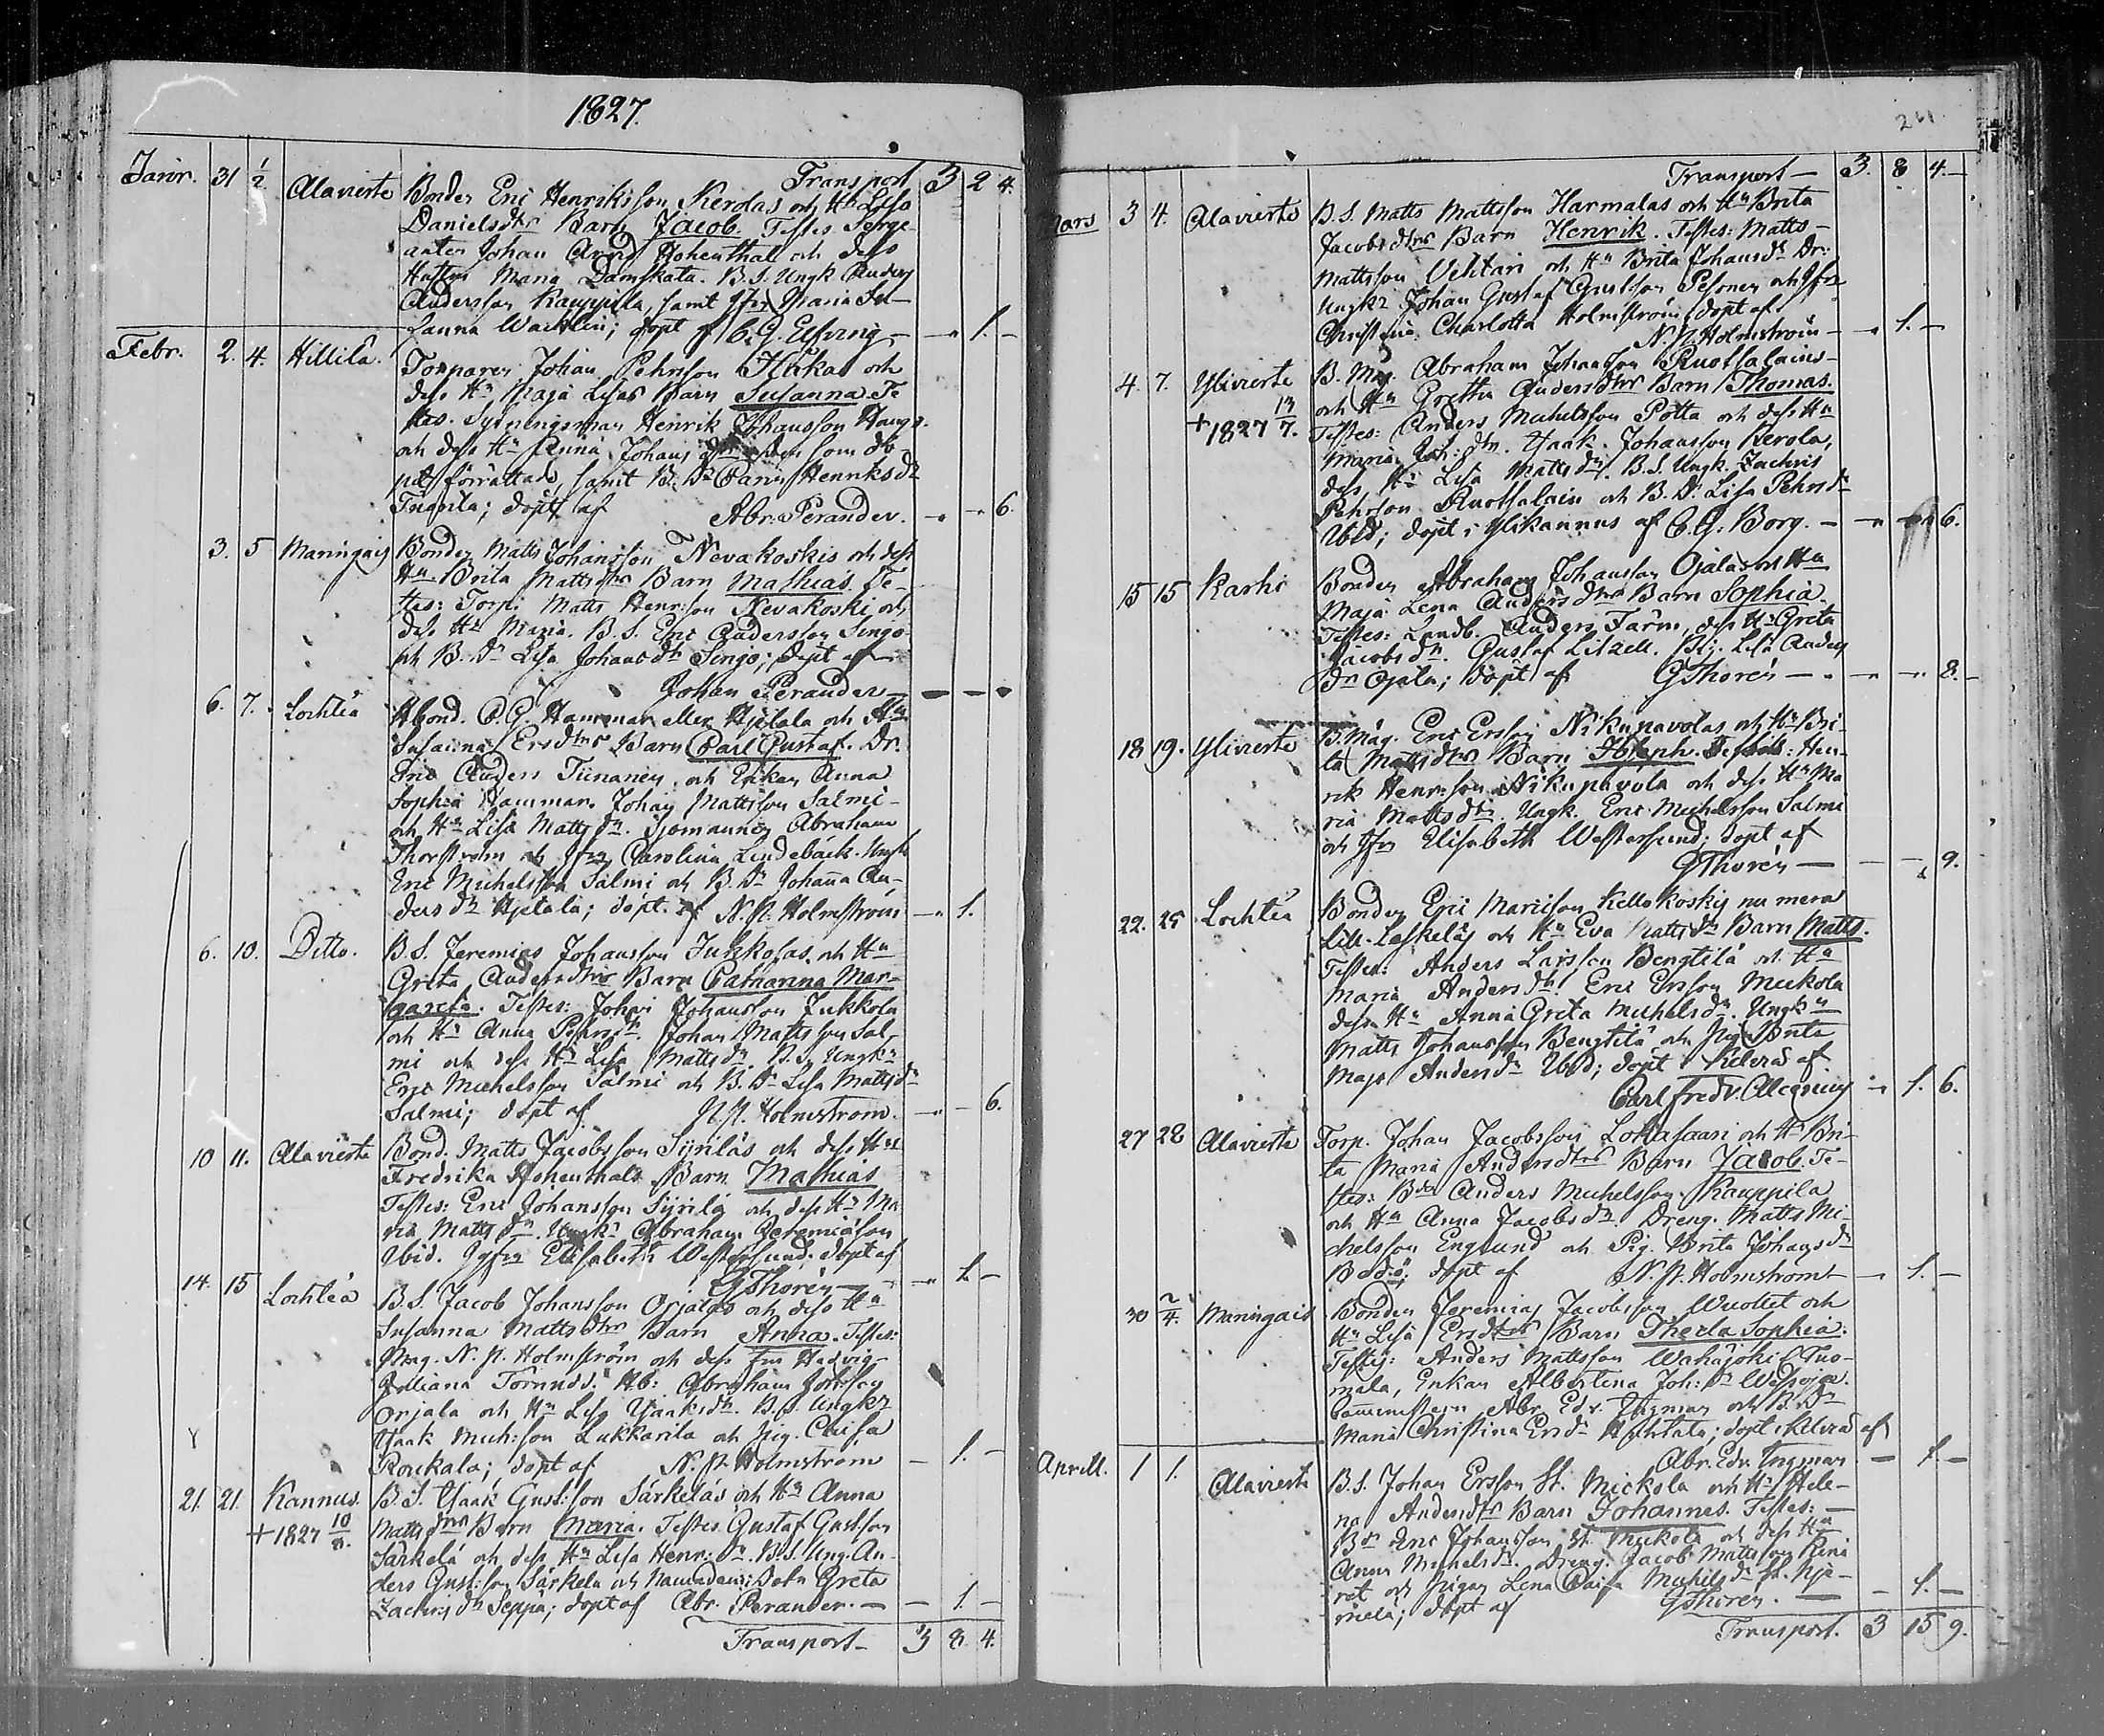 1827.
Transport 3 2 4.
Janr. 31 1/2 Alavieste Bonden Eric Henriksson Kerolas och Hu Lisa
Danielsdtrs Barn Jacob. Testes Serge-
anten Johan Arvid Hohenthal och dess
Hustru Maria Damskata. B.S. Ungk Anders
Andersson Kauppila, samt Jfr Maria Su-
sanna Wacklin; döpt af C.G. Elfving — " 1. —
Febr. 2. 4. Hillilä. Torparen Johan Pehrsson and
dess Hu Maja Lisas Barn Susanna. Te-
stes. Sytningsman Henrik Johansson
och dess Hu Anna Johansdtr som do-
pet förrättade, samt B. Dr Henriksdr
; döpt af Abr. Perander. — " — 6.
3. 5 Maringais Bonden Matts Johansson Nevakoskis och dess
Hu Brita Mattsdtrs Barn Mathias. Te-
stes: Torp. Matts Henr:son Nevakoski och
dess Hu Maria. B.S. Eric Andersson Singo
och B. Dr Lisa Johansdtr Singo; döpt af
Johan Perander — — — "
6. 7. Lochteå Åbond. C.G. Hammar eller Hjelala och Hu
Susanna Ersdtrs Barn Carl Gustaf. Dr.
Eric Anders Tiinanen och Enkan Anna
Sophia Hammar. Johan Mattsson Salmi
och Hu Lisa Mattsdr. Sjömannen Abraham
Thorström och Jfr Carolina Lindebäck. Ungk
Eric Michelsson Salmi och B. Dr Johanna An-
dersdr Hjelala; döpt af N.N. Holmström — " 1.
6. 10. Ditto. B.S. Jeremias Johansson Jukkolas och Hu
Greta Andersdtrs Barn Catharina Mar-
gareta. Testes: Johan Johansson Jukkola
och Hu Anna Pehrsdr. Johan Mattsson Sal-
mi och dess Hu Lisa Mattsdr. B.S. Ungkn
Eric Michelsson Salmi och B. Dr Lisa Mattsdr
Salmi; döpt af N.N. Holmström. — " — 6.
10 11. Alavieste Bond. Matts Jacobsson Siiriläs och dess Hu
Fredrika Hohenthals Barn Mathias
Testes: Eric Johansson Siirilä och dess Hu Ma-
ria Mattsdr. Ungk. Abraham Jeremiasson
Ibid. Jfr Elisabeth Westersund. döpt af
GThorén — " 1. —
14. 15 Lochteå B.S. Jacob Johansson Orjalas och dess Hu
Susanna Mattsdtrs Barn Anna. Testes:
Mag. N.N. Holmström och dess fru Hedvig
Juliana Tornudd. Åb: Abraham Johsson
Orjala och Hu Lisa Isaksdr. B.S. Ungkr
Isaak Mich:son Lukkarila och Pig. Caisa
Roukala; döpt af N.N. Holmström — 1. —
21. 21. Kannus. B.S. Isaak Gust:son Särkeläs och Hu Anna
+ 1827 10/8. Mattsdtrs Barn Maria. Testes. Gustaf Gustsson
Särkelä och dess Hu Lisa Henr: Dr. B.S. Ung. An-
ders Gust:son Särkelä och Greta
Zachrisdr Seppä; döpt af Abr. Perander. — — 1. —
Transport — 3 8. 4.
261.
Transport — 3. 8 4. —
Mars 3 4. Alavieste B.S. Matts Mattsson Harmalas och Hu Brita
Jacobsdtrs Barn Henrik. Testes: Matts
Mattsson Vehtari och Hu Brita Johansdr Dr:
Ungkr Johan Gustaf Gustsson Pesonen och Jfr
Christina Charlotta Holmström; döpt af
N.N. Holmström — — " 1. —
4. 7. Ylivieste B. Måg. Abraham Johansson Ruottalains
+ 1827 13/7. och Hu Gretha Andersdtrs Barn Thomas.
Testes: Anders Michelsson Potta och dess Hu
Maria Joh: dtr. Isaak Johansson Kerola,
dess Hu Lisa Mattsdr. B.S. Ungk. Zachris
Pehrsson Ruottalain och B. Dr. Lisa Pehrsdr
Ibid; döpt i Ylikannus af C.G. Borg. — — " 6.
15 15 Karhi Bonden Abraham Johansson Ojalas och Hu
Maja Lena Andersdtrs Barn Sophia.
Testes: Landb. Anders Färm, dess Hu Greta
Jacobsdr. Gustaf Litzell. Pig. Lisa Anders
Dr Ojala; döpt af GThorén — " — " — 8. —
18 19. Ylivieste B. Måg. Eric Ersson Nikupavolas och Hu Bri-
ta Mattsdtrs Barn Joseph. Testes: Hen-
rik Henr:son Nikupavola och dess Hu Ma
ria Mattsdr. Ungk. Eric Michelsson Salmi
och Jfr Elisabeth Westersund; döpt af
GThorén — — — " 9.
22. 25 Lochteå Bonden Eric Maricsson Kellokoski nu mera
Lill-Laskeläs och Hu Eva Mattsdr Barn Matts.
Testes: Anders Larsson Bengtilä och Hu
Maria Andersdr. Eric Ersson Mickola
dess Hu Anna Greta Michelsdr. Ungkn
Matts Johansson Bengtilä och Pig. Brita
Maja Andersdr Ibid; döpt i Kelviå af
Carl Fredr. Alcenius — " 1. 6.
27 28 Alavieste Torp. Johan Jacobsson Lottasaari och Hu Bri-
ta Maria Andersdtrs Barn Jacob. Te-
stes: Bdn Anders Michelsson Kauppila
och Hu Anna Jacobsdr. Dreng. Matts Mi-
chelsson Englund och Pig. Brita Johansdr
Bodö; döpt af N.N. Holmström — — " 1. —
30 2/4. Maringais Bonden Jeremias Jacobsson Wuollet och
Hu Lisa Ersdtrs Barn Thecla Sophia.
Testes: Anders Mattsson Wähäjoki l. Tuo-
mala, Enkan Albertina Joh: Dr
Comministern Abr. Edv. Ingman och B. Dr
Maria Christina Ersdr ; döpt i Kelviå af
Abr. Edv. Ingman. — 1. —
Aprill. 1 1. Alavieste B.S. Johan Ersson St. Mickola och Hu Hele-
na Andersdtrs Barn Johannes. Testes: —
Bdn Eric Johansson St. Mickola och dess Hu
Anna Michelsdr. Dreng. Jacob Mattsson
och Pigan Lena Caisa Michelsdr
; döpt af GThorén. — — 1. —
Transport. 3 15 9.